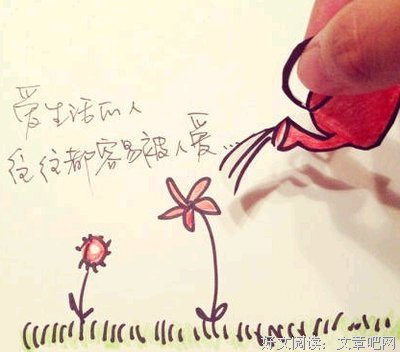 爱生活的人
往往都容易被人爱...
好文阅读：文章吧网